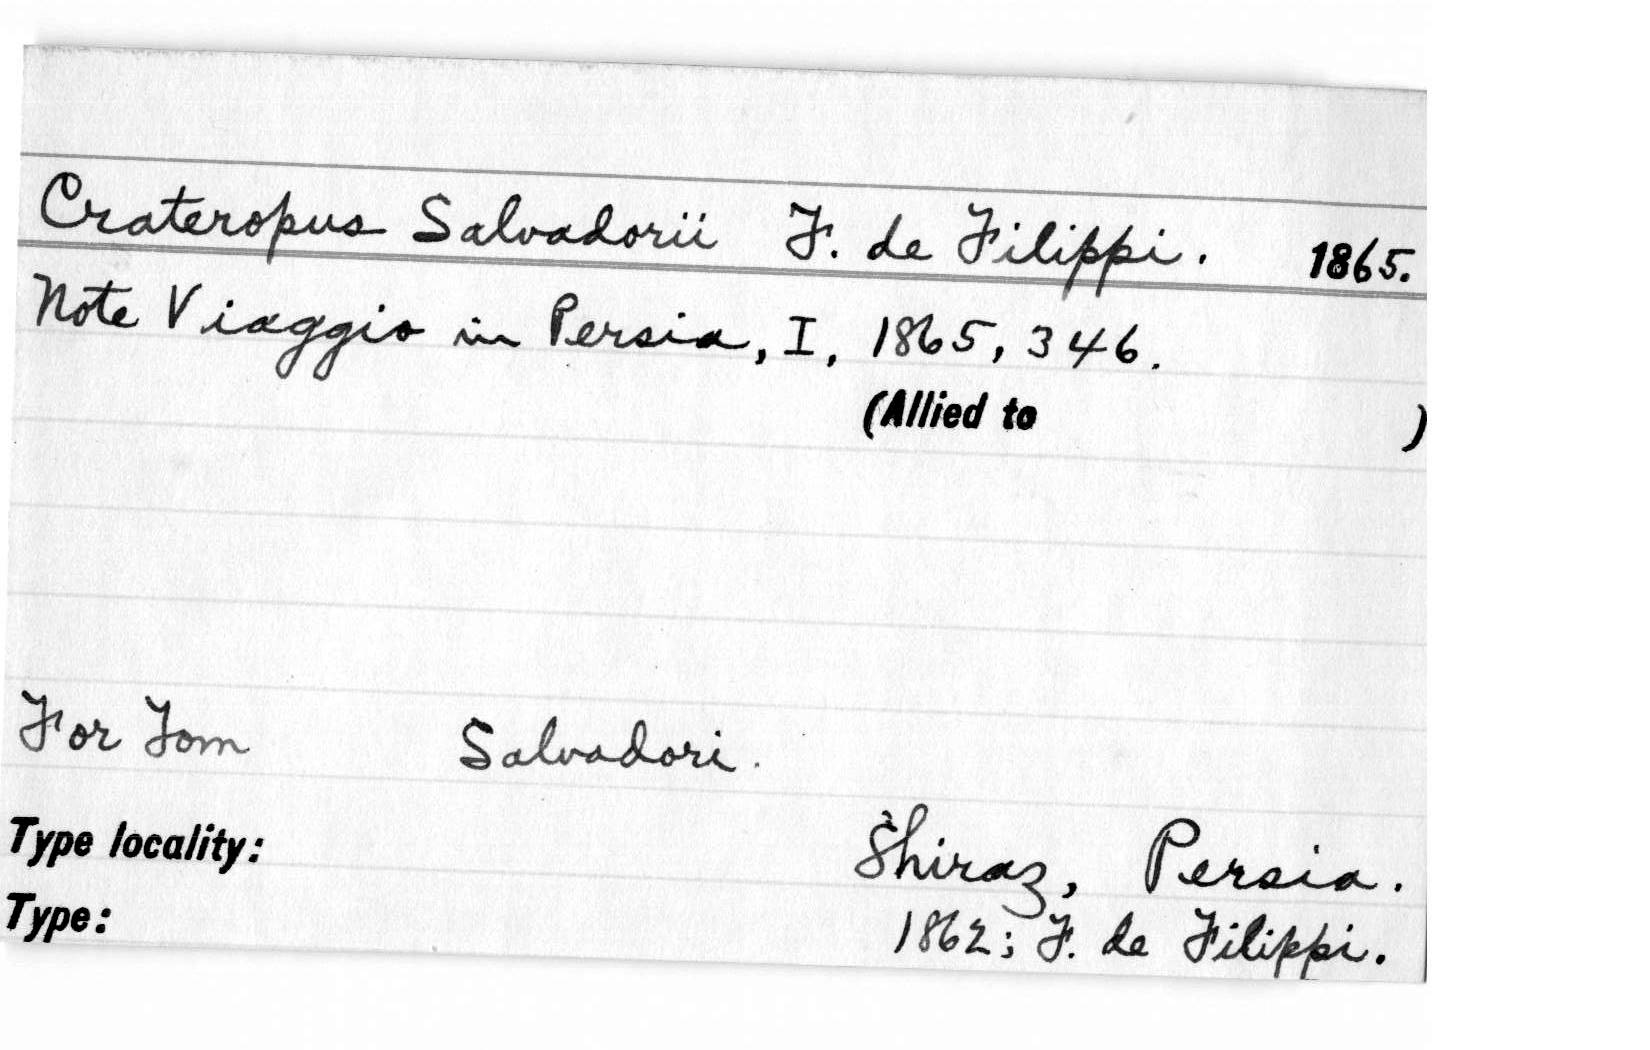 Crateropus Salvadorii F. de Filippi. 1865.
Note Viaggio in Persia, I, 1865, 346.
(Allied to )
For Tom Salvadori.
Type locality: Shiraz, Persia.
Type: 1862; F. de Filippi.